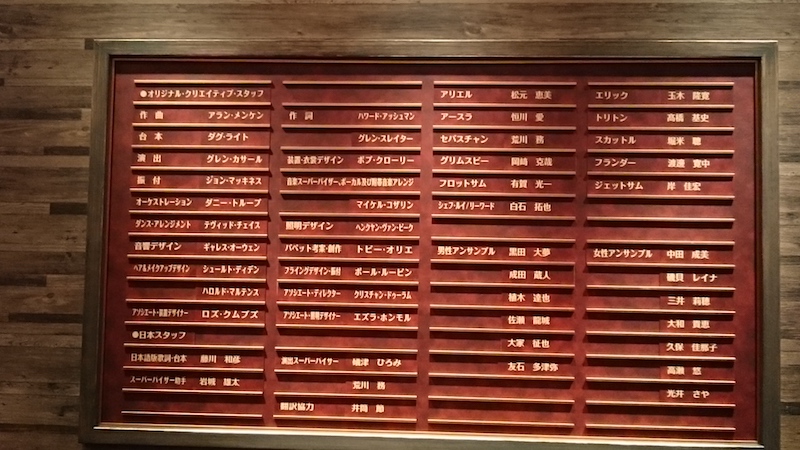 ●オリジナル・クリエイティブ・スタッフ
作 曲 アラン・メンケン
作 詞 ハワード・アッシュマン
グレン・スレイター
台 本 ダグ・ライト
演 出 グレン・カサール
装置・衣裳デザイン ボブ・クローリー
振 付 ジョン・マッキネス
音楽スーパーバイザー、ボーカル及び間奏音楽アレンジ
マイケル・コザリン
オーケストレーション ダニー・トルーブ
ダンス・アレンジメント デヴィッド・チェイス
照明デザイン
音響デザイン ギャレス・オーウェン
パペット考案・創作 トビー・オリエ
ヘア&メイクアップデザイン
フライングデザイン・振付 ポール・ルービン
ハロルド・マルテンス
アソシエート・ディレクター クリスチャン・ドゥーラム
アソシエート・装置デザイナー ロズ・クムブズ
アソシエート・照明デザイナー エズラ・ホンモル
●日本スタッフ
日本語版歌詞・台本 藤川 和彦
演出スーパーバイザー ひろみ
スーパーバイザー助手 岩城 雄太
荒川 務
翻訳協力 井関 節
アリエル 松元 恵美
アースラ 恒川 愛
セバスチャン 荒川 務
グリムスビー 岡崎 克哉
フロットサム 有賀 光一
シェフ・ルイ/リーワード 白石 拓也
男性アンサンブル 黒田 大夢
成田 蔵人
植木 達也
佐瀬 龍城
大家 征也
友石 多津弥
エリック 玉木 隆寛
トリトン 高橋 基史
スカットル 堀米 聰
フランダー 渡邊 寛中
ジェットサム 岸 佳宏
女性アンサンブル 中田 成美
磯貝 レイナ
三井 莉穂
大和 貴恵
久保 佳那子
高瀬 悠
光井 さや